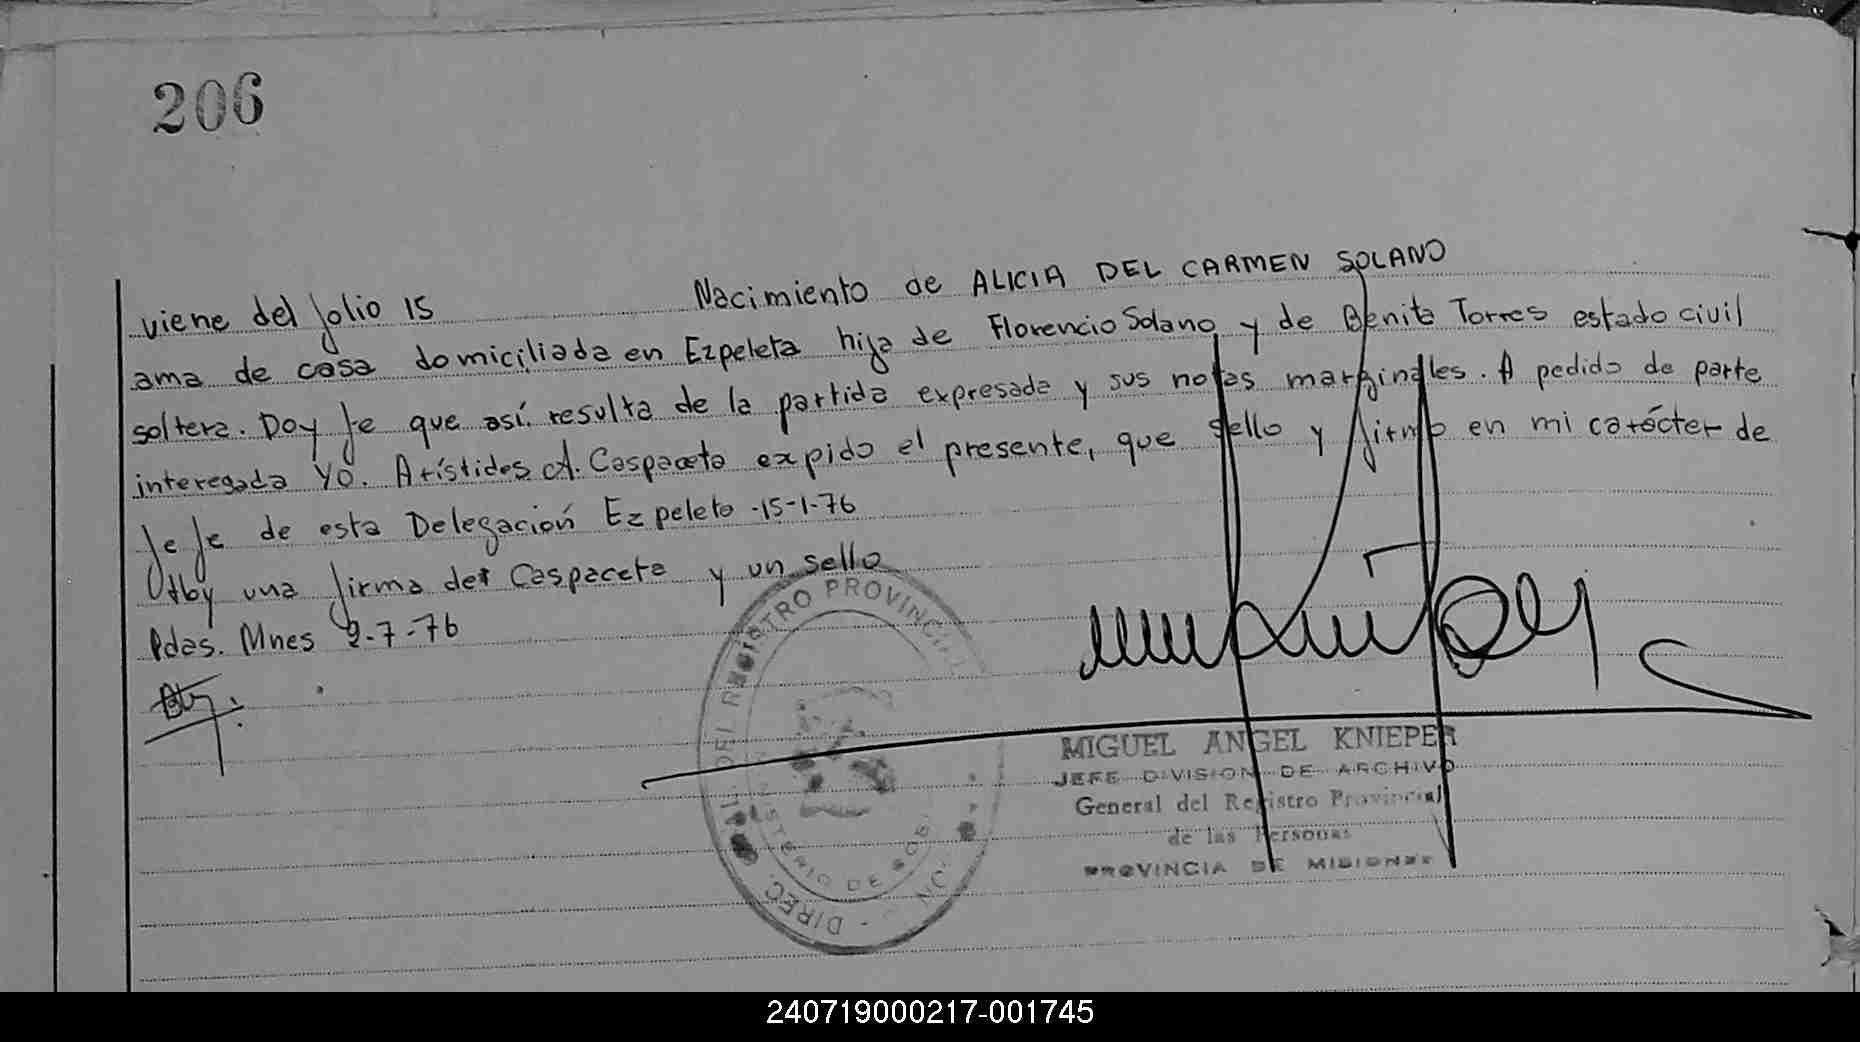 206
viene del folio 15 Nacimiento de ALICIA DEL CARMEN SOLANO
ama de casa domiciliada en Ezpeleta hija de Florencio Solano y de Benita Torres estado civil
soltera. Doy fe que así resulta de la partida expresada y sus notas marginales. A pedido de parte
interesada YO. Arístides A. Caspaceta expido el presente, que sello y firmo en mi carácter de
Jefe de esta Delegación Ezpeleta -15-1-76
Hay una firma de Caspaceta y un sello
Pdas. Mnes 2-7-76
DIREC. DEL REGISTRO PROVINCIAL
MINISTERIO DE GOB.
MIGUEL ANGEL KNIEPER
JEFE DIVISION DE ARCHIVO
General del Registro Provincial
de las Personas
PROVINCIA DE MISIONES
240719000217-001745